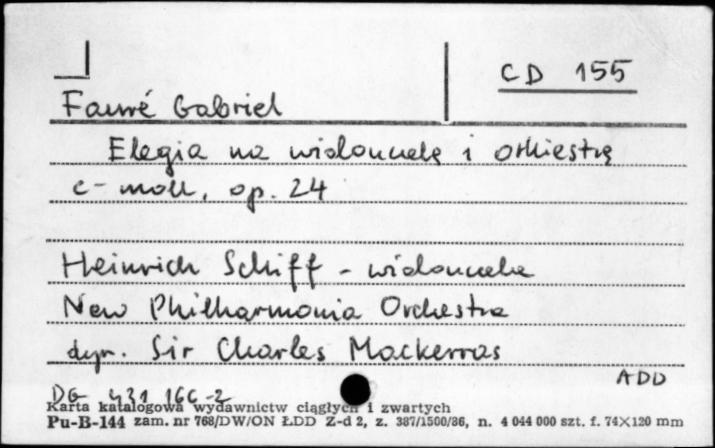 CD 155
Fauré Gabriel
Elegia na wiolonczelę i orkiestrę
c-moll, op. 24
Heinrich Schiff - wiolonczela
New Philharmonia Orchestra
dyr. Sir Charles Mackerras
ADD
DG 431 166-2
Karta katalogowa wydawnictw ciągłych i zwartych
Pu-B-144 zam. nr 768/DW/ON ŁDD Z-d 2, z. 387/1500/86, n. 4 044 000 szt. f. 74×120 mm